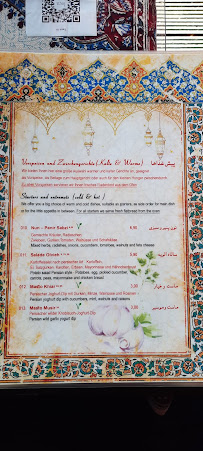 Vorspeisen und Zwischengerichte (Kalte & Warme)
پیش غذاها
Wir bieten Ihnen hier eine große Auswahl warmer und kalter Gerichte an, geeignet
als Vorspeise, als Beilage zum Hauptgericht oder auch für den kleinen Hunger zwischendurch.
Zu allen Vorspeisen servieren wir Ihnen frisches Fladenbrot aus dem Ofen
Starters and entremets (cold & hot)
We offer you a big choice of warm and cold dishes, suitable as starters, as side order for main dish
or for the little appetite in between. For all starters we serve fresh flatbread from the oven
010 Nun - Panir Sabzi 5,90 نون پنیر سبزی
Gemischte Kräuter, Radieschen,
Zwiebeln, Gurken, Tomaten, Walnüsse und Schafskäse
Mixed herbs, radishes, onions, cucumbers, tomatoes, walnuts and feta cheese
011 Salade Olivieh 5,90 سالاد الویه
Kartoffelsalat nach persischer Art - Kartoffeln,
Ei, Salzgurken, Karotten, Erbsen, Mayonnaise und Hähnchenbrust
Potato salad Persian style - Potatoes, egg, pickled cucumber,
carrots, peas, mayonnaise and chicken breast
012 Masto Khiar 3,90 ماست و خیار
Persischer Joghurt-Dip mit Gurken, Minze, Walnüsse und Rosinen
Persian yoghurt dip with cucumbers, mint, walnuts and raisins
013 Masto Musir 3,90 ماست و موسیر
Persischer wilder Knoblauch-Joghurt-Dip
Persian wild garlic yogurt dip